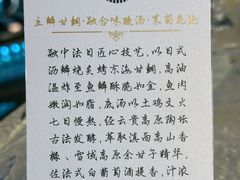 立鳞甘鲷·融合味酸汤·茉莉花泡
融中法日匠心技艺，以日式
沥鳞烧炙烤京海甘鲷，高油
温炸至鱼鳞酥脆如金，鱼肉
嫩润如脂，底汤以土鸡文火
七日慢熬，经云贵高原陶坛
古法发酵，萃取滇西高山香
橼、雪域高原余甘子精华，
佐法式白葡萄酒提香，汁浓